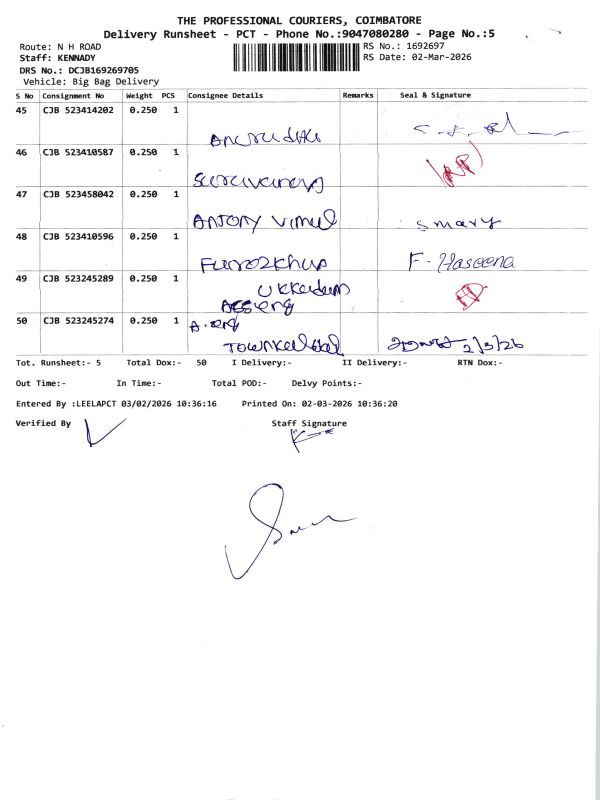 THE PROFESSIONAL COURIERS, COIMBATORE
Delivery Runsheet - PCT - Phone No.:9047080280 - Page No.:5
Route: N H ROAD
RS No.: 1692697
Staff: KENNADY
RS Date: 02-Mar-2026
DRS No.: DCJB169269705
Vehicle: Big Bag Delivery
S No Consignment No Weight PCS Consignee Details Remarks Seal & Signature
45 CJB 523414202 0.250 1
46 CJB 523410587 0.250 1
47 CJB 523458042 0.250 1
Antony Vimul Smary
48 CJB 523410596 0.250 1
F. Haseena
49 CJB 523245289 0.250 1
50 CJB 523245274 0.250 1
2/3/26
Tot. Runsheet:- 5 Total Dox:- 50 I Delivery:- II Delivery:- RTN Dox:-
Out Time:- In Time:- Total POD:- Delvy Points:-
Entered By :LEELAPCT 03/02/2026 10:36:16 Printed On: 02-03-2026 10:36:20
Verified By Staff Signature